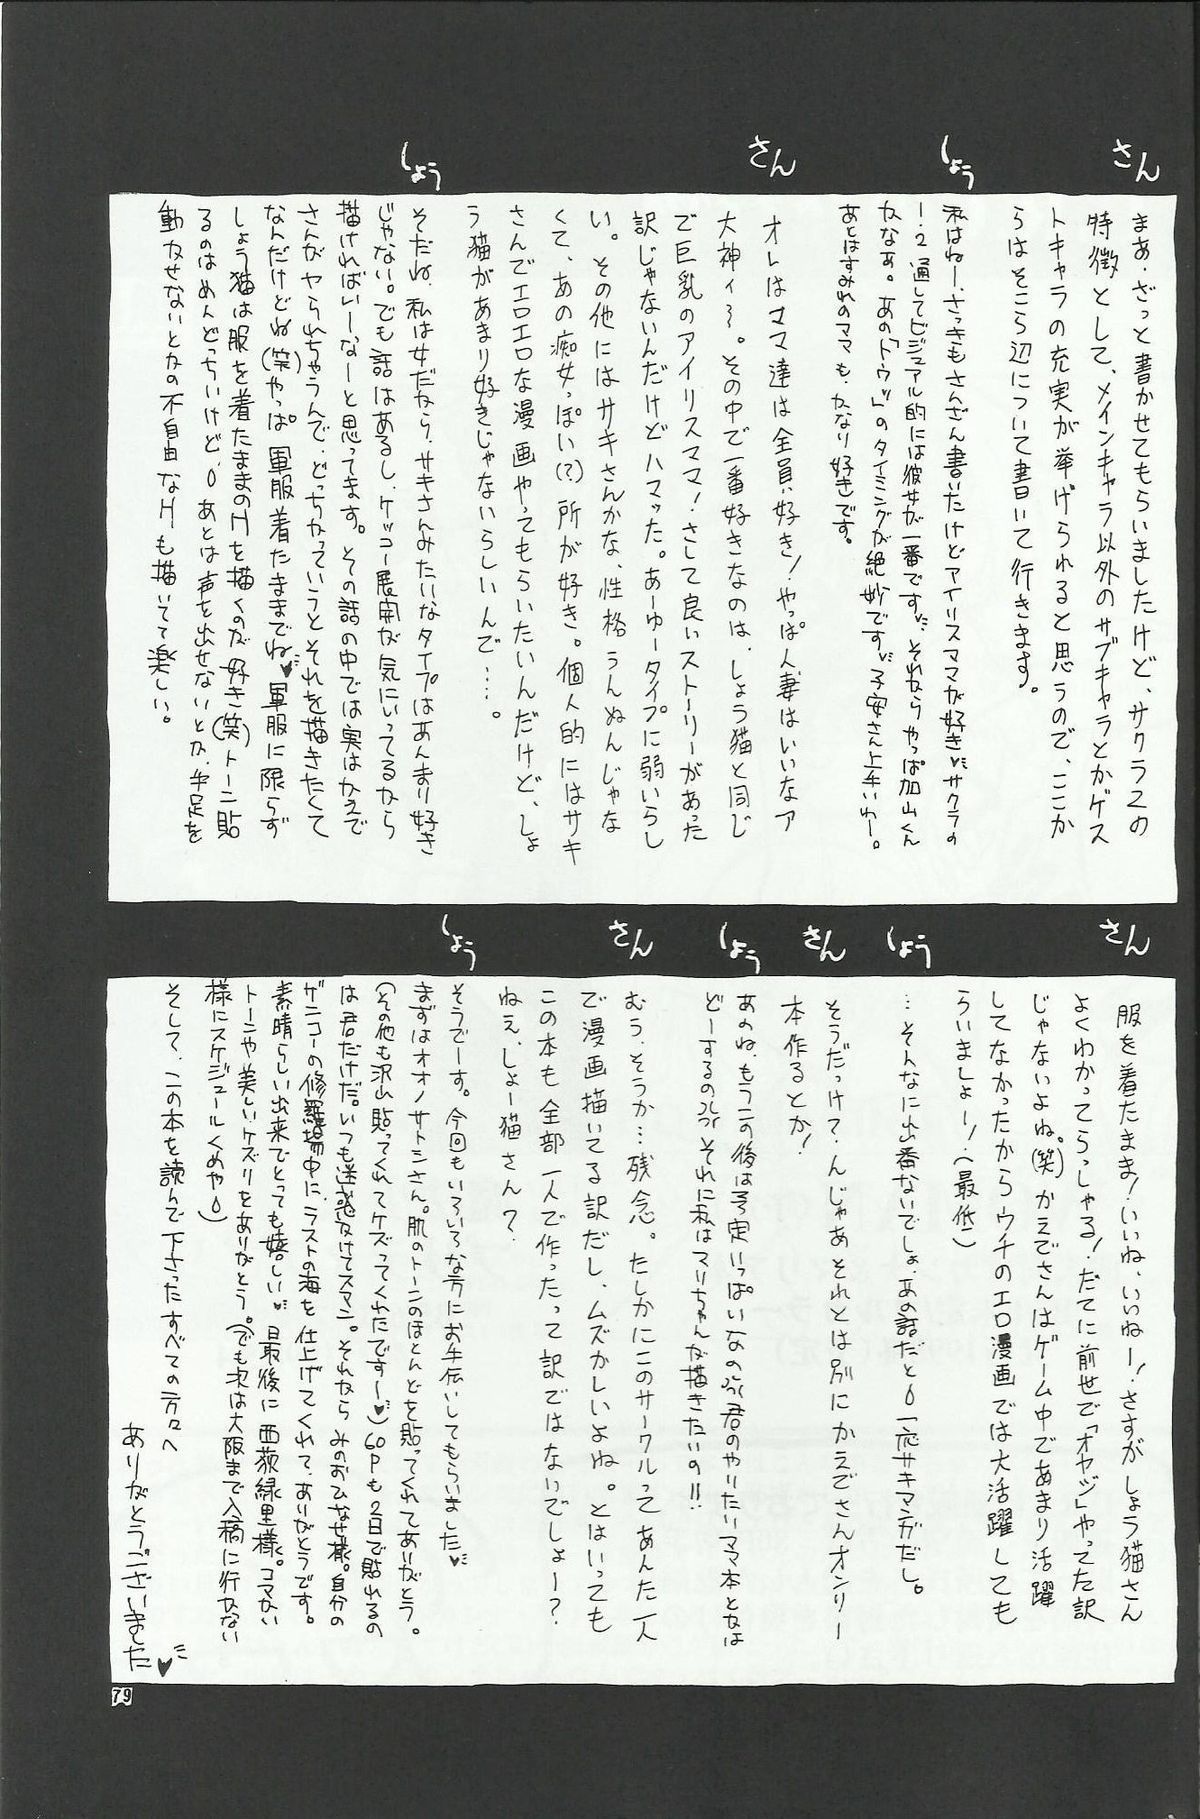 さん
まあ、ざっと書かせてもらいましたけど、サクラ2の
特徴として、メインキャラ以外のサブキャラとかゲス
トキャラの充実が挙げられると思うので、ここか
らはそこら辺について書いて行きます。
しょう
私はねー、さっきもさんざん書いたけどアイリスママが好き♥サクラの
1、2通してビジュアル的には彼女が一番です♥それならやっぱ加山くん
かなあ。あの「トウッ」のタイミングが絶妙です♥子安さん上手いわー。
あとはすみれのママも、かなり好きです。
さん
オレはママ達は全員好き!やっぱ人妻はいいなァ
大神ィ〜。その中で一番好きなのは、しょう猫と同じ
で巨乳のアイリスママ!さして良いストーリーがあった
訳じゃないんだけどハマった。あーゆータイプに弱いらし
い。その他にはサキさんかな、性格うんぬんじゃな
くて、あの痴女っぽい(?)所が好き。個人的にはサキ
さんでエロエロな漫画やってもらいたいんだけど、しょ
う猫があまり好きじゃないらしいんで…。
しょう
そだね、私は女だから、サキさんみたいなタイプはあんまり好き
じゃない。でも話はあるし、ケッコー展開が気にいってるなら
描ければいーなーと思ってます。その話の中では実はかえで
さんがヤられちゃうんで、どっちかっていうとそれを描きたくて
なんだけどね(笑)やっぱ軍服着たままでね♥軍服に限らず
しょう猫は服を着たままのHを描くのが好き(笑)トーン貼
るのはめんどっちいけど、あとは声を出せないとか、手足を
動かせないとかの不自由なHも描いてて楽しい。
さん
服を着たまま!いいね、いいねー!さすがしょう猫さん
よくわかってらっしゃる!だてに前世で「オヤジ」やってた訳
じゃないよね。(笑)かえでさんはゲーム中であまり活躍
してなかったからウチのエロ漫画では大活躍しても
らいましょー!(最低)
しょう
…そんなに出番ないでしょ、あの話だと 一応サキマンガだし。
さん
そうだっけ?、んじゃあそれとは別にかえでさんオンリー
本作るとか!
しょう
あのね、もうこの後は予定いっぱいなの 君のやりたいママ本とかは
どーするの それに私はマリちゃんが描きたいの!!
さん
むう、そうか…残念。たしかにこのサークルってあんた一人
で漫画描いてる訳だし、ムズかしいよね。とはいっても
この本も全部一人で作ったって訳ではないでしょー?
ねえ、しょー猫さん?
しょう
そうでーす。今回もいろいろな方にお手伝いしてもらいました♥
まずはオオノサトシさん。肌のトーンのほとんどを貼ってくれてありがとう。
(その他も沢山貼ってくれてケズってくれたですー♥)60Pも2日で貼れるの
は君だけだ。いつも迷惑かけてスマン。それから みのおひなせ様。自分の
ゲンコーの修羅場中に、ラストの海を仕上げてくれて、ありがとうです。
素晴らしい出来でとっても嬉しい♥ 最後に西荻緑里様。コマかい
トーンや美しいケズリをありがとう。(でも次は大阪まで入稿に行かない
様にスケジュールくめや)
そして、この本を読んで下さったすべての方々へ
ありがとうございました♥
79